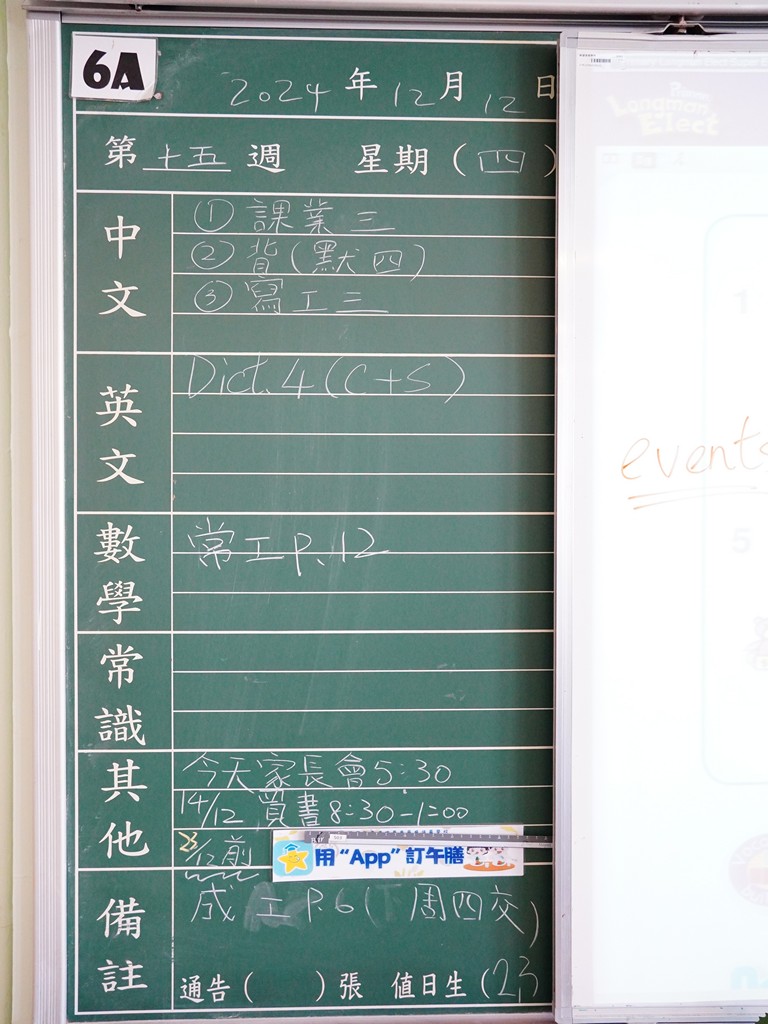 6A
2024 年 12 月 12 日
第 十五 週 星期 ( 四 )
中文
① 課業三
② 背(默四)
③ 寫工三
英文
Dict. 4 (C+S)
數學
常工 P. 12
常識
其他
今天家長會 5:30
14/12 買書 8:30-1:00
23/12前
用“App”訂午膳
備註
成工 P.6( 周四交)
通告( )張 值日生(23
Longman
Elect
1
events
5